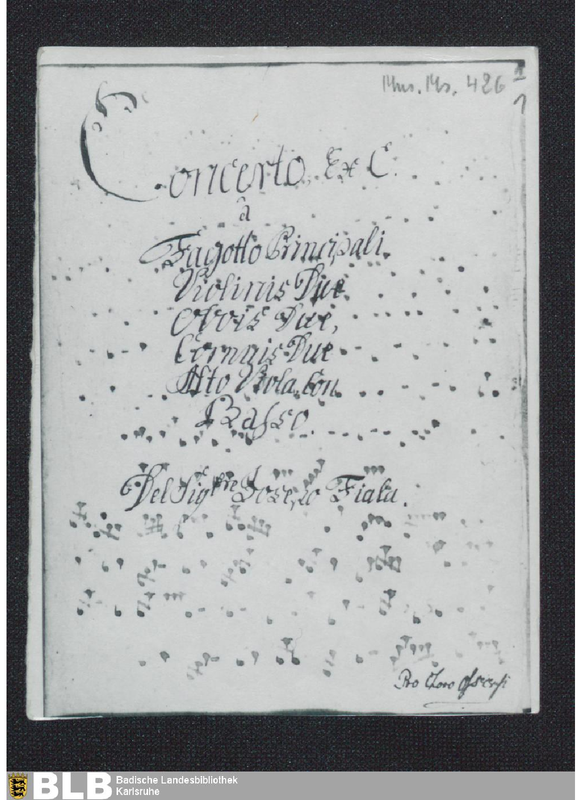 Mus. Ms. 426
1
Concerto Ex C.
à
Fagotto Principali.
Violinis Due
Obois Due,
Cornuis Due
Alto Viola, con
Basso.
Del Sig:re Josepo Fiala.
Pro Choro
BLB Badische Landesbibliothek
Karlsruhe